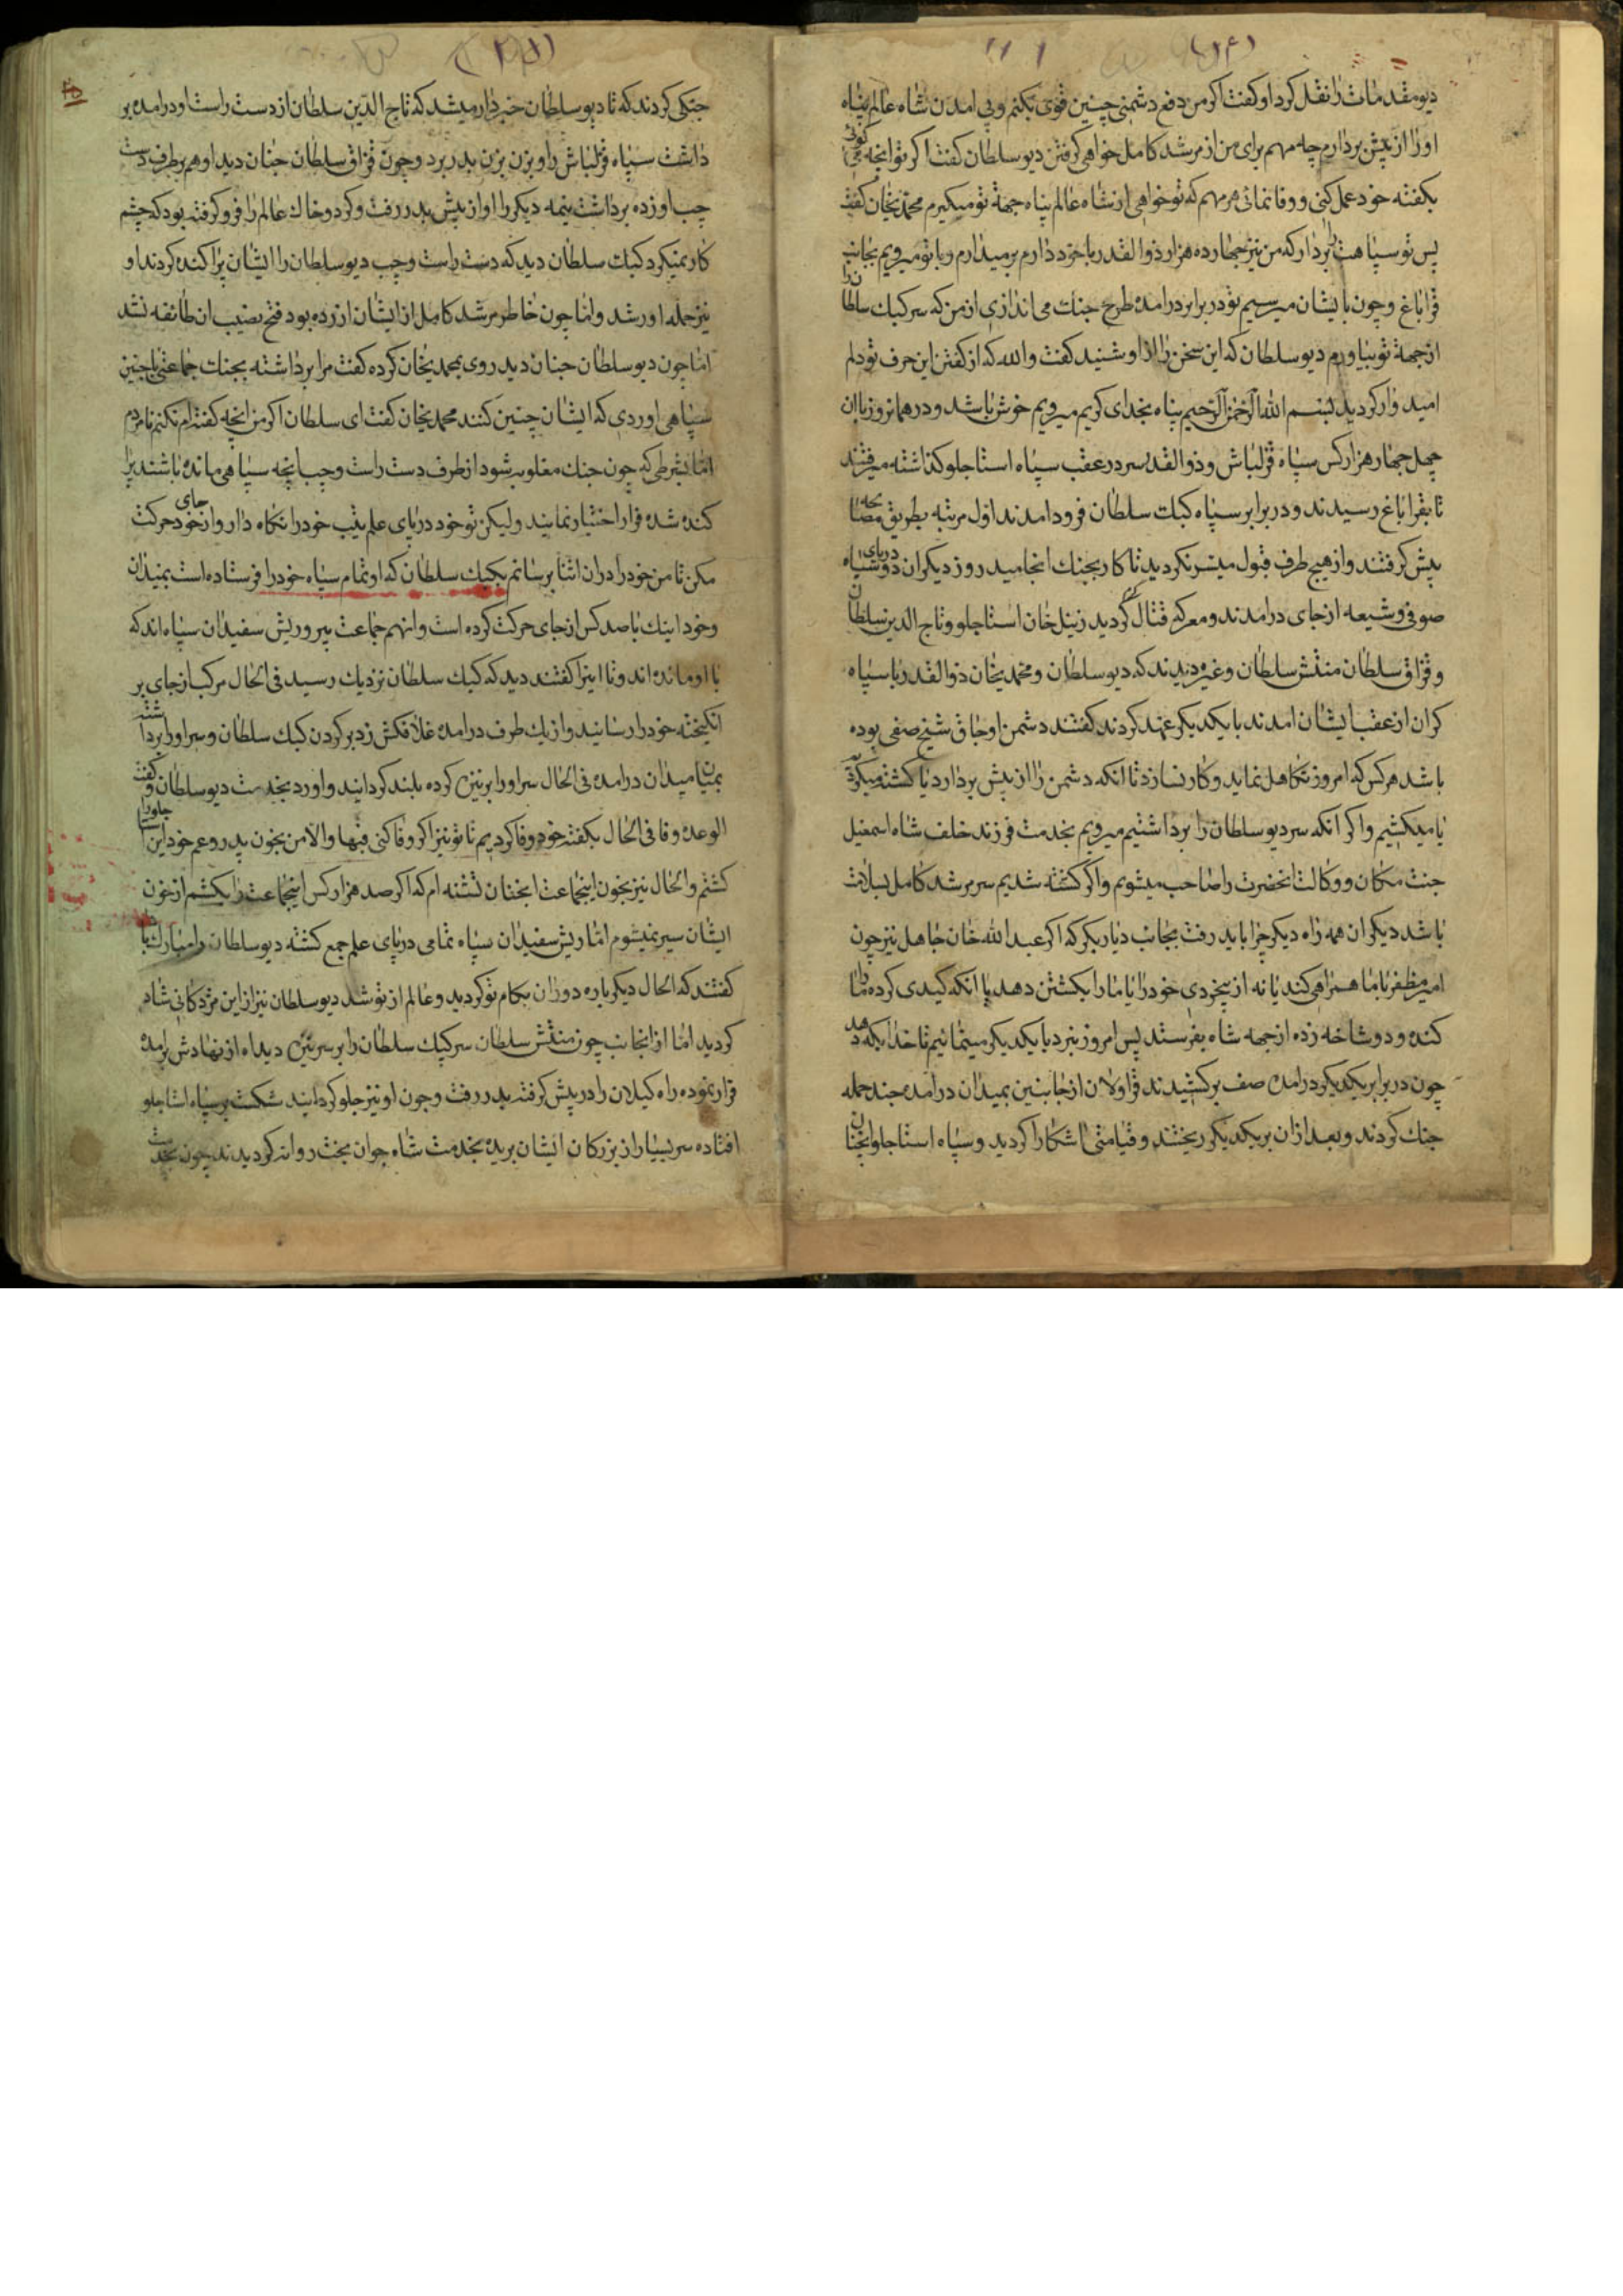 دیو مقدمات را نقل کرد او کفت اکر من دفع دشمنی چنین قوی بکنم و بی امدن شاه عالم پناه
او را از پیش بردارم چه مهم برای من از مرشد کامل خواهی کرفتن دیو سلطان کفت اکر تو انچه می کوئی
بکفته خود عمل کنی و وفا نمائی هر مهم که تو خواهی از شاه عالم پناه جهة تو میکیرم محمدیخان کفت
پس تو سپاهت را بردار که من نیز چهارده هزار ذوالقدر با خود دارم برمیدارم و با تو میرویم بجانب
قراباغ و چون بایشان میرسیم تو در برابر درامده طرح جنک می اندازی از من که سر کبک سلطان را
از جهة تو بیاورم دیو سلطان که این سخن را از او شنید کفت والله که از کفتن این حرف تو دلم
امیدوار کردید بسم الله الرحمن الرحیم پناه بخدای کریم میرویم خوش باشد و در همانروز باان
چهل چهار هزار کس سپاه قزلباش و ذوالقدر سر در عقب سپاه استاجلو کذاشته میرفتند
تا بقراباغ رسیدند و در برابر سپاه کبک سلطان فرود امدند اول مرتبه بطریق مصالحه
پیش کرفتند و از هیچ طرف قبول میسر نکردید تا کار بجنک انجامید روز دیکر ان دو دریای سپاه
صوفی و شیعه از جای درامدند و معرکه قتال کرم کردید زینل خان استاجلو و تاج الدین سلطان
و قزاق سلطان منتش سلطان و غیره دیدند که دیو سلطان و محمدیخان ذوالقدر با سپاه
کران از عقب ایشان امدند با یکدیکر عهد کردند کفتند دشمن اوجاق شیخ صفی بوده
باشد هر کس که امروز تکاهل نماید و کار نسازد تا انکه دشمن را از پیش بردارد یا کشته میکردیم
یا میکشیم و اکر انکه سر دیو سلطان را برداشتیم میرویم بخدمت فرزند خلف شاه اسمعیل
جنت مکان و وکالت انحضرت را صاحب میشویم و اکر کشته شدیم سر مرشد کامل بسلامت
باشد دیکر ان همه راه دیکر چرا باید رفت بجانب دیاربکر که اکر عبد الله خان جاهل نیز چون
امیر مظفر با ما همراهی کند یا نه از بیخردی خود را یا ما را بکشتن دهد یا انکه کیدی کرده ما را
کنده و دوشاخه زده از جهه شاه بفرستد پس امروز نبرد با یکدیکر مینمائیم تا خدا بکه دهد
چون در برابر یکدیکر درامده صف برکشیدند قراولان از جانبین بمیدان درامده چند حمله
جنک کردند و بعد از ان بر یکدیکر ریختند و قیامتی اشکارا کردید و سپاه استاجلو انچنان
جنکی کردند که تا دیو سلطان خبردار میشد که تاج الدین سلطان از دست راست او درامده بر
داشت سپاه قزلباش را و بزن بزن بدر برد و چون قزاق سلطان چنان دید او هم بر طرف دست
چپ او زده برداشت نیمه دیکر را او از پیش بدر رفت و کرد و خاک عالم را فرو کرفته بود که چشم
کار نمیکرد کبک سلطان دید که دست راست و چپ دیو سلطان را ایشان پراکنده کردند او
نیز حمله اور شد و اما چون خاطر مرشد کامل از ایشان ازرده بود فتح نصیب ان طائفه نشد
اما چون دیو سلطان چنان دید روی بمحمدیخان کرده کفت مرا برداشته بجنک جماعتی باچنین
سپاهی اوردی که ایشان چنین کنند محمدیخان کفت ای سلطان اکر من انچه کفته ام نکنم نامردم
اما بشرطی که چون جنک مغلوبه شود از طرف دست راست و چپ انچه سپاهی مانده باشند پرا
کنده شده فرار اختیار نمایند ولیکن تو خود در پای علم یتیب خود را نکاه دار و از جای خود حرکت
مکن تا من خود را در ان اثنا برسانم بکبک سلطان که او تمام سپاه خود را فرستاده است بمیدان
و خود اینک با صد کس از جای حرکت کرده است و انهم جماعت پیر و ریش سفیدان سپاه اند که
با او مانده اند و تا اینرا کفتند دید که کبک سلطان نزدیک رسید فی الحال مرکب از جای بر
انکیخته خود را رسانید و از یک طرف درامده غلافکش زد بر کردن کبک سلطان و سر او را برداشته
بمیان میدان درامده فی الحال سر او را بر نیزه کرده بلند کردانید و اورد بخدمت دیو سلطان و کفت
الوعده وفا فی الحال بکفته خود وفا کردیم تا تو نیز اکر وفا کنی فبها والا من بخون پدر و عم خود این استاجلو را
کشتم و الحال نیز بخون اینجماعت انچنان تشنه ام که اکر صد هزار کس اینجماعت را بکشم از خون
ایشان سیر نمیشوم اما ریش سفیدان سپاه تمامی در پای علم جمع کشته دیو سلطان را مبارک باد
کفتند که الحال دیکر باره دوران بکام تو کردید و عالم از تو شد دیو سلطان نیز از این مژدکانی شاد
کردید اما از انجانب چون منتش سلطان سر کپک سلطان را بر سر نیزه دید اه از نهادش برامده
قرار نموده راه کیلان را در پیش کرفته بدر رفت و چون او نیز جلو کردانید شکست بر سپاه استاجلو
افتاده سر بسیار از بزرکان ایشان بریده بخدمت شاه جوان بخت روانه کردیدند چون بخدمت